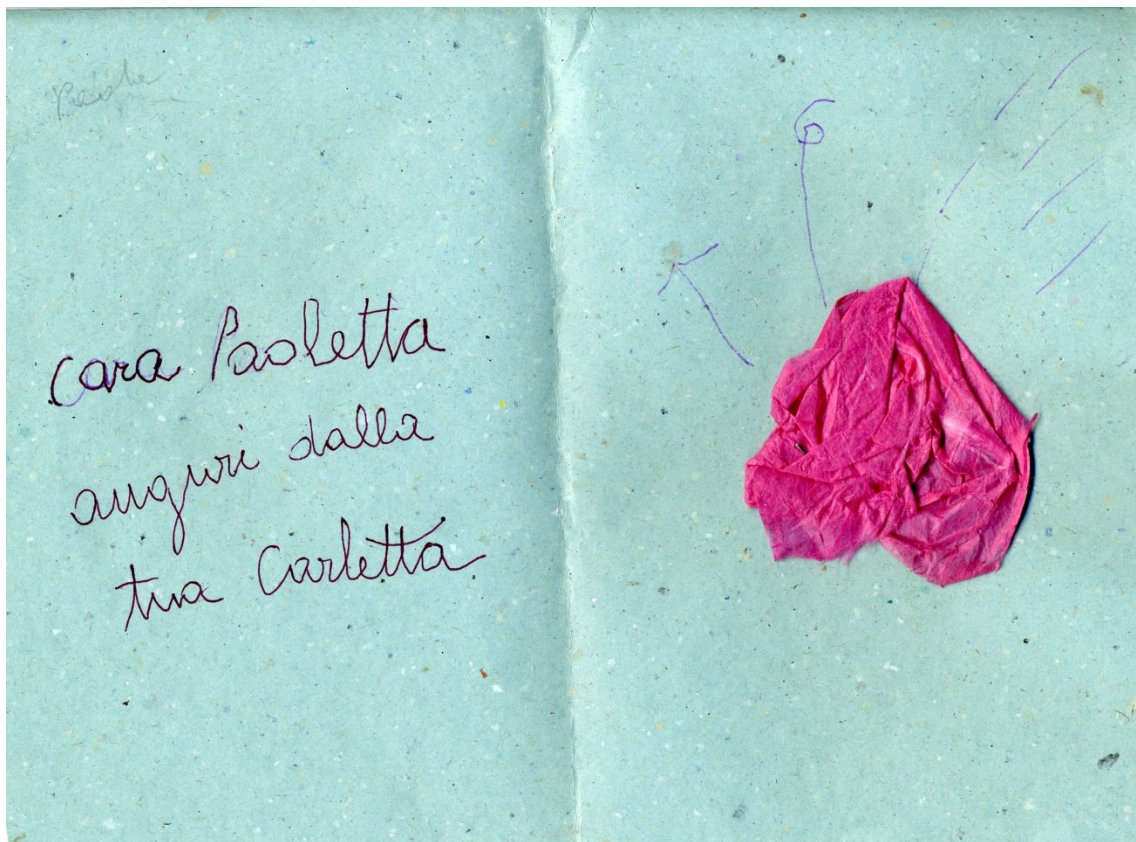 cara Paoletta
auguri dalla
tua Carletta